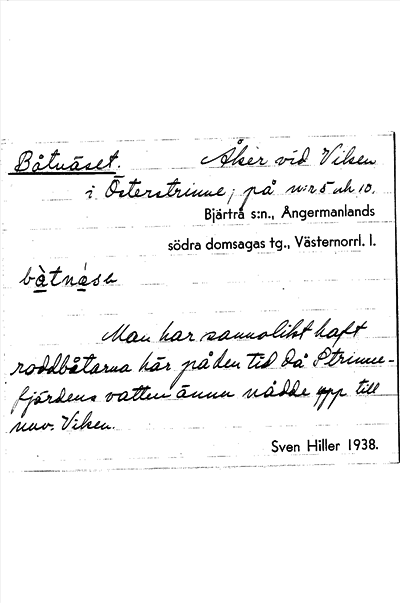 Båtnäset. Åker vid Viken
i Österstrinne, på n:r 5 och 10.
Bjärtrå s:n., Ångermanlands
södra domsagas tg., Västernorrl. l.
bàtnása
Man har sannolikt haft
roddbåtarna här på den tid då Strinne-
fjärdens vatten ännu nådde upp till
nuv. Viken.
Sven Hiller 1938.